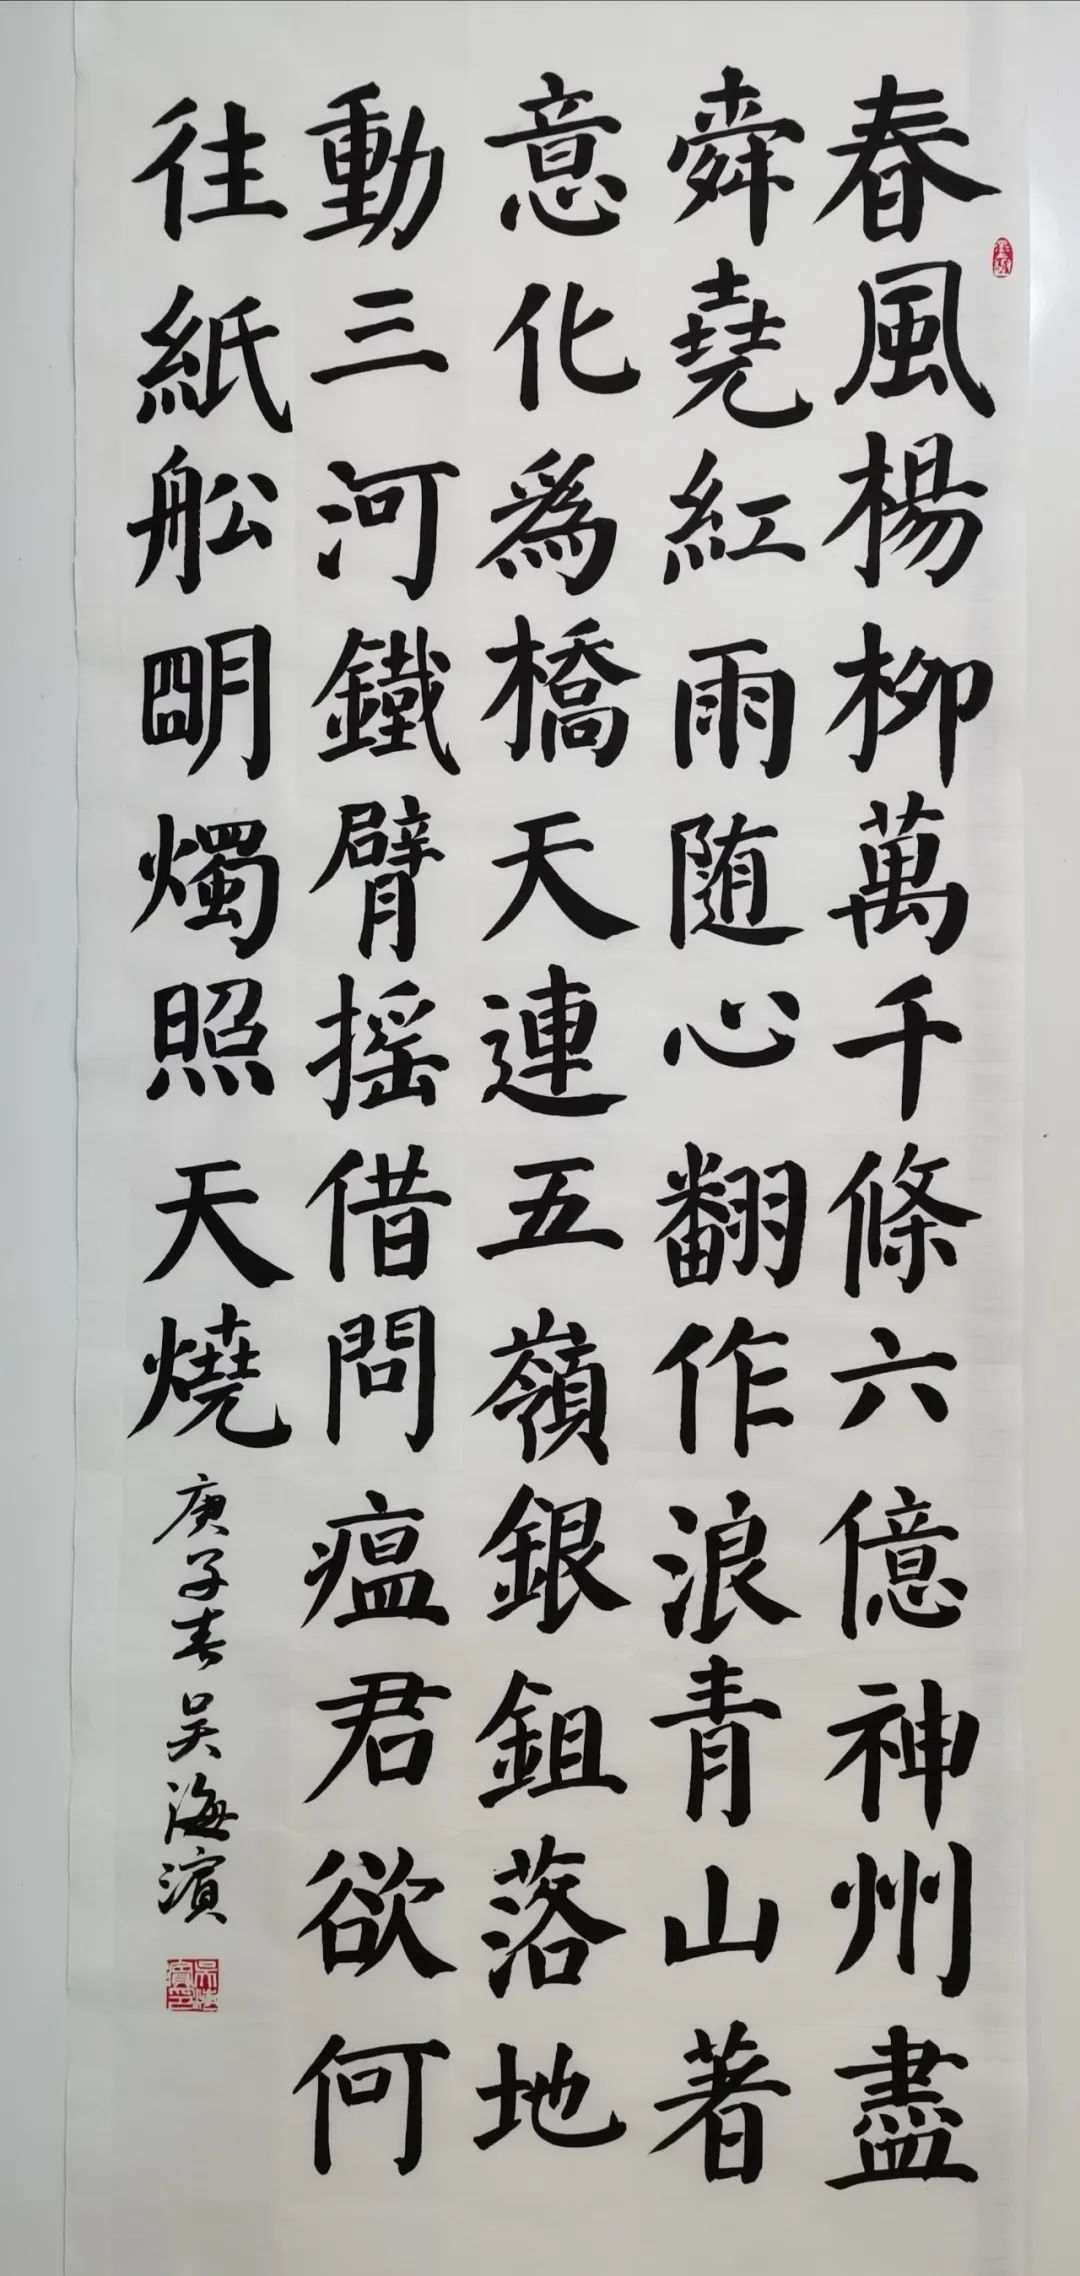 春風楊柳萬千條六億神州盡
舜堯紅雨随心翻作浪青山著
意化為橋天連五嶺銀鉏落地
動三河鐵臂摇借問瘟君欲何
往紙船明燭照天燒
庚子春吴海濱